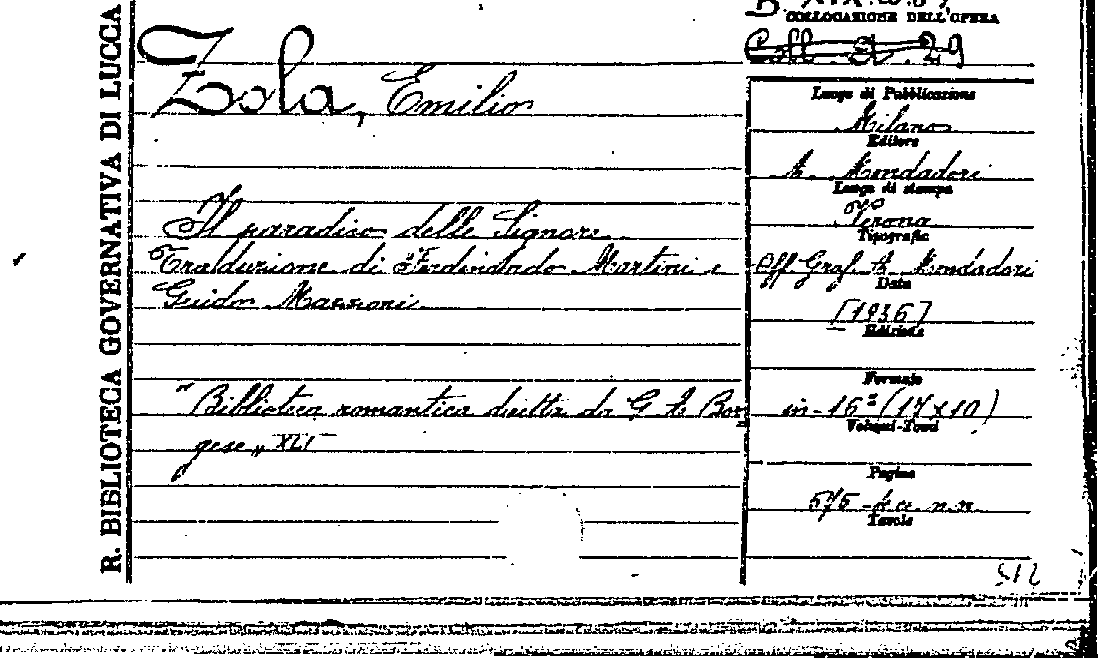 R. BIBLIOTECA GOVERNATIVA DI LUCCA
COLLOCAZIONE DELL'OPERA
Coll. 29
Zola, Emilio
Il paradiso delle Signore.
Tralduzione di Ferdindado Martini e
Guido Mazzoni
"Biblioteca romantica diretta da G A Bor
gese„ XLI
Luogo di Pubblicazione
Milano
Editore
A. Mondadori
Luogo di stampa
Verona
Tipografia
Off Graf A Mondadori
Data
[1936]
Edizione
Formato
in-16º (17x10)
Volumi-Tomi
Pagine
575 n.n.
Tavole
512